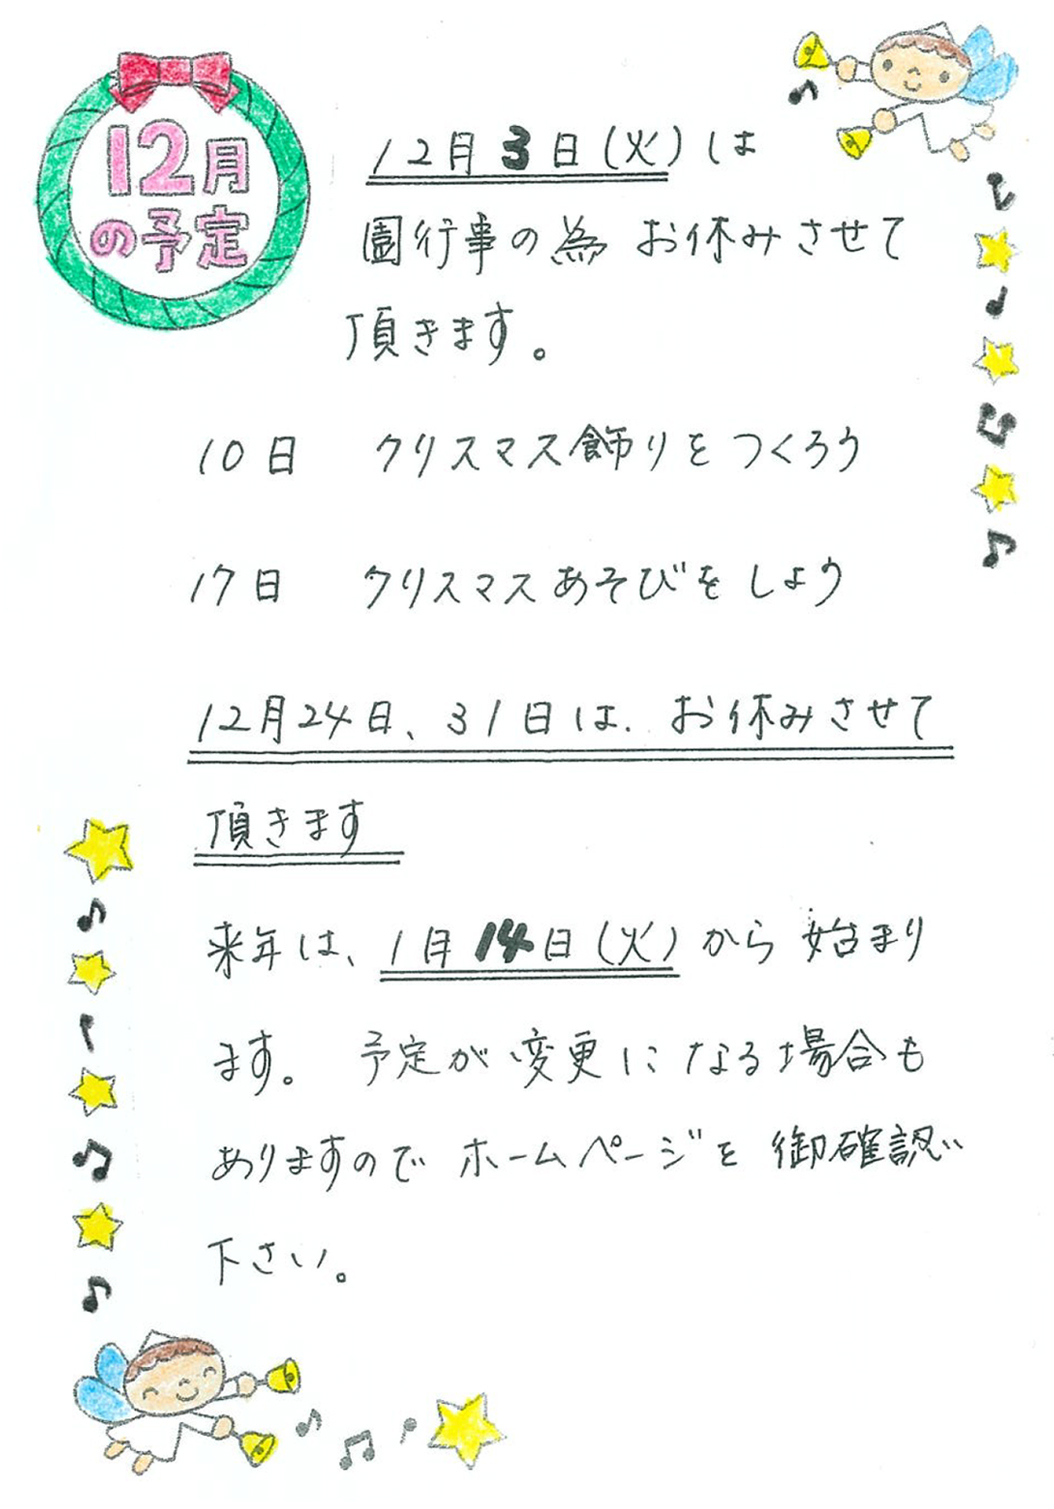 12月
の予定
12月3日(火)は
園行事の為 お休みさせて
頂きます。
10日 クリスマス飾りをつくろう
17日 クリスマスあそびをしよう
12月24日、31日は、お休みさせて
頂きます
来年は、1月14日(火)から始まり
ます。 予定が変更になる場合も
ありますので ホームページを御確認
下さい。